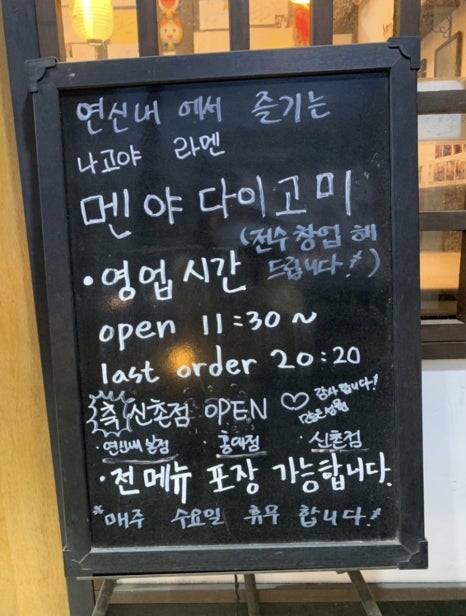 연신내 에서 즐기는
나고야 라멘
멘야 다이고미
(전수 창업 해
드립니다!)
• 영업시간
open 11:30 ~
last order 20:20
축 신촌점 OPEN ♡ 감사합니다!
· 연신내 본점 · 홍대점 · 신촌점
• 전메뉴 포장 가능합니다.
* 매주 수요일 휴무 합니다!